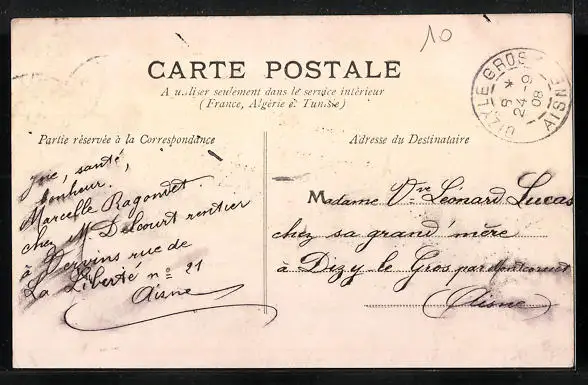 10
CARTE POSTALE
A utiliser seulement dans le service intérieur
(France, Algérie et Tunisie)
DIZY LE GROS
AISNE
9 *
24 - 9
08
Partie réservée à la Correspondance
Joie, santé,
bonheur.
Marcelle Ragondet.
chez M. Delcourt rentier
à Vervins rue de
La Liberté n° 21
Aisne
Adresse du Destinataire
Madame Vve Léonard Lucas
chez sa grand' mère
à Dizy le Gros par Montcornet
(Aisne)